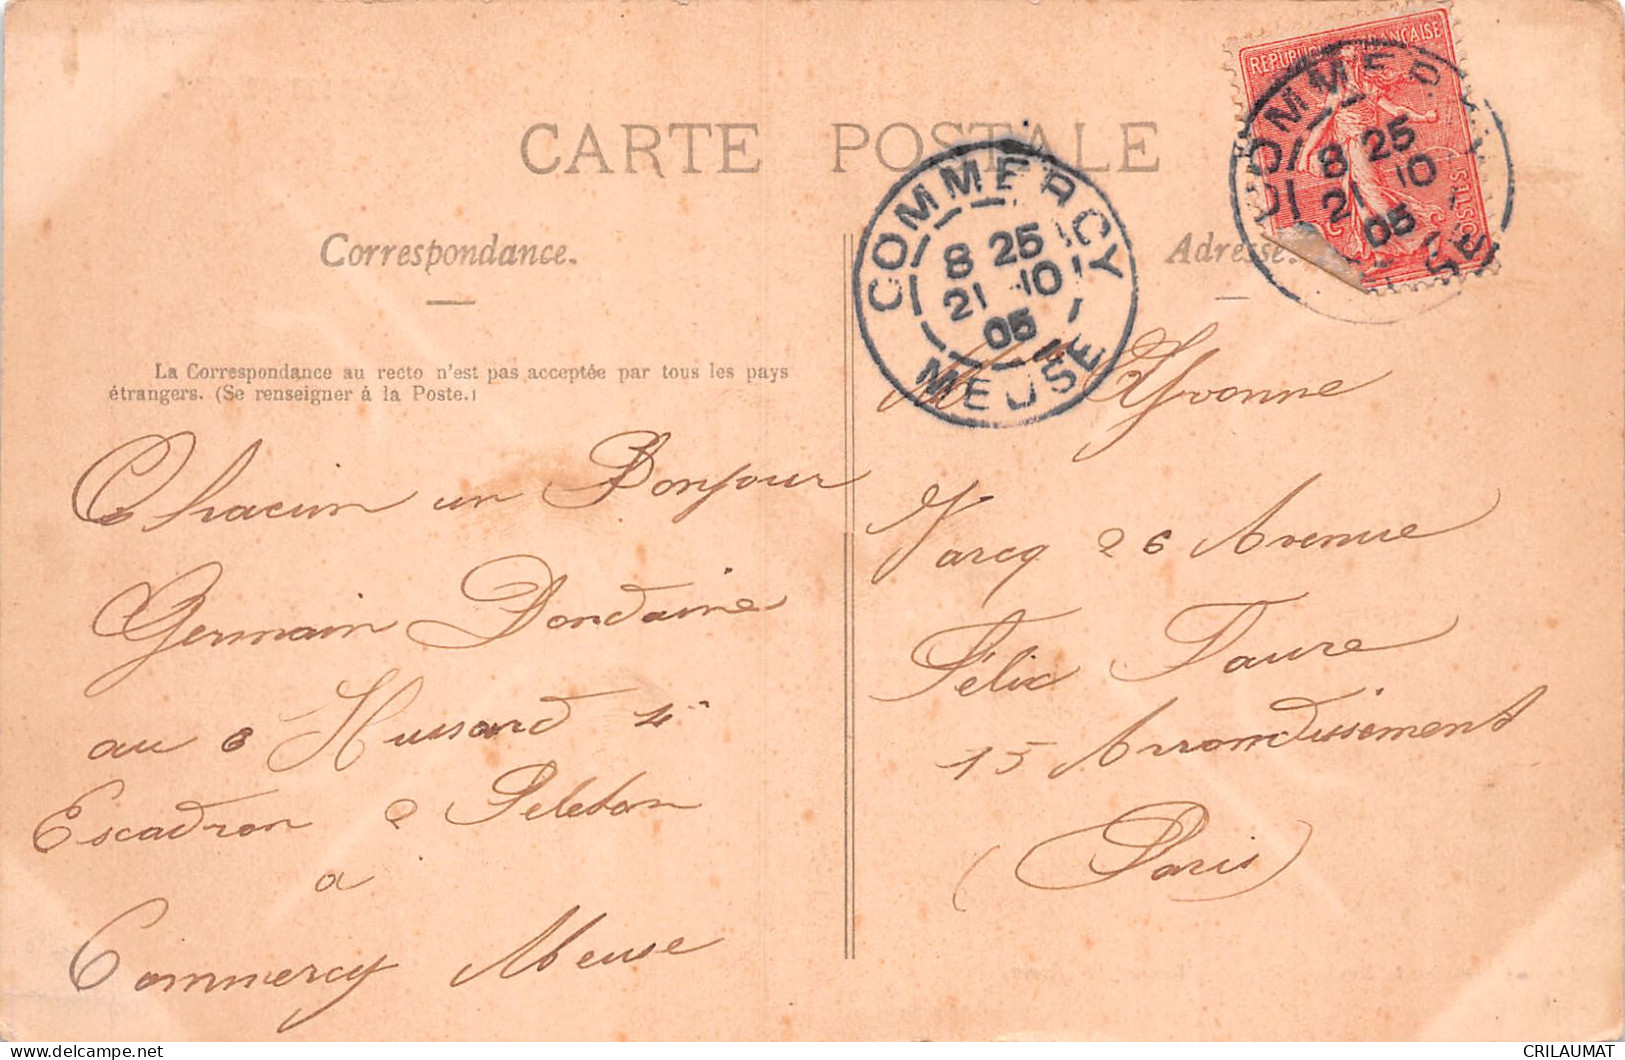 CARTE POSTALE
Correspondance.
La Correspondance au recto n'est pas acceptée par tous les pays
étrangers. (Se renseigner á la Poste.)
Chacun un Bonjour
Germain Dondaine
au 6 Hussard 4
Escadron 2 Peleton
a
Commercy Meuse
REPUBLIQUE FRANÇAISE
POSTES
COMMERCY
8 25
21 10
05
MEUSE
COMMERCY
8 25
21 10
05
MEUSE
Adresse.
Yvonne
Varcq 26 Avenue
Félix Faure
15 Arrondissement
(Paris)
CRILAUMAT